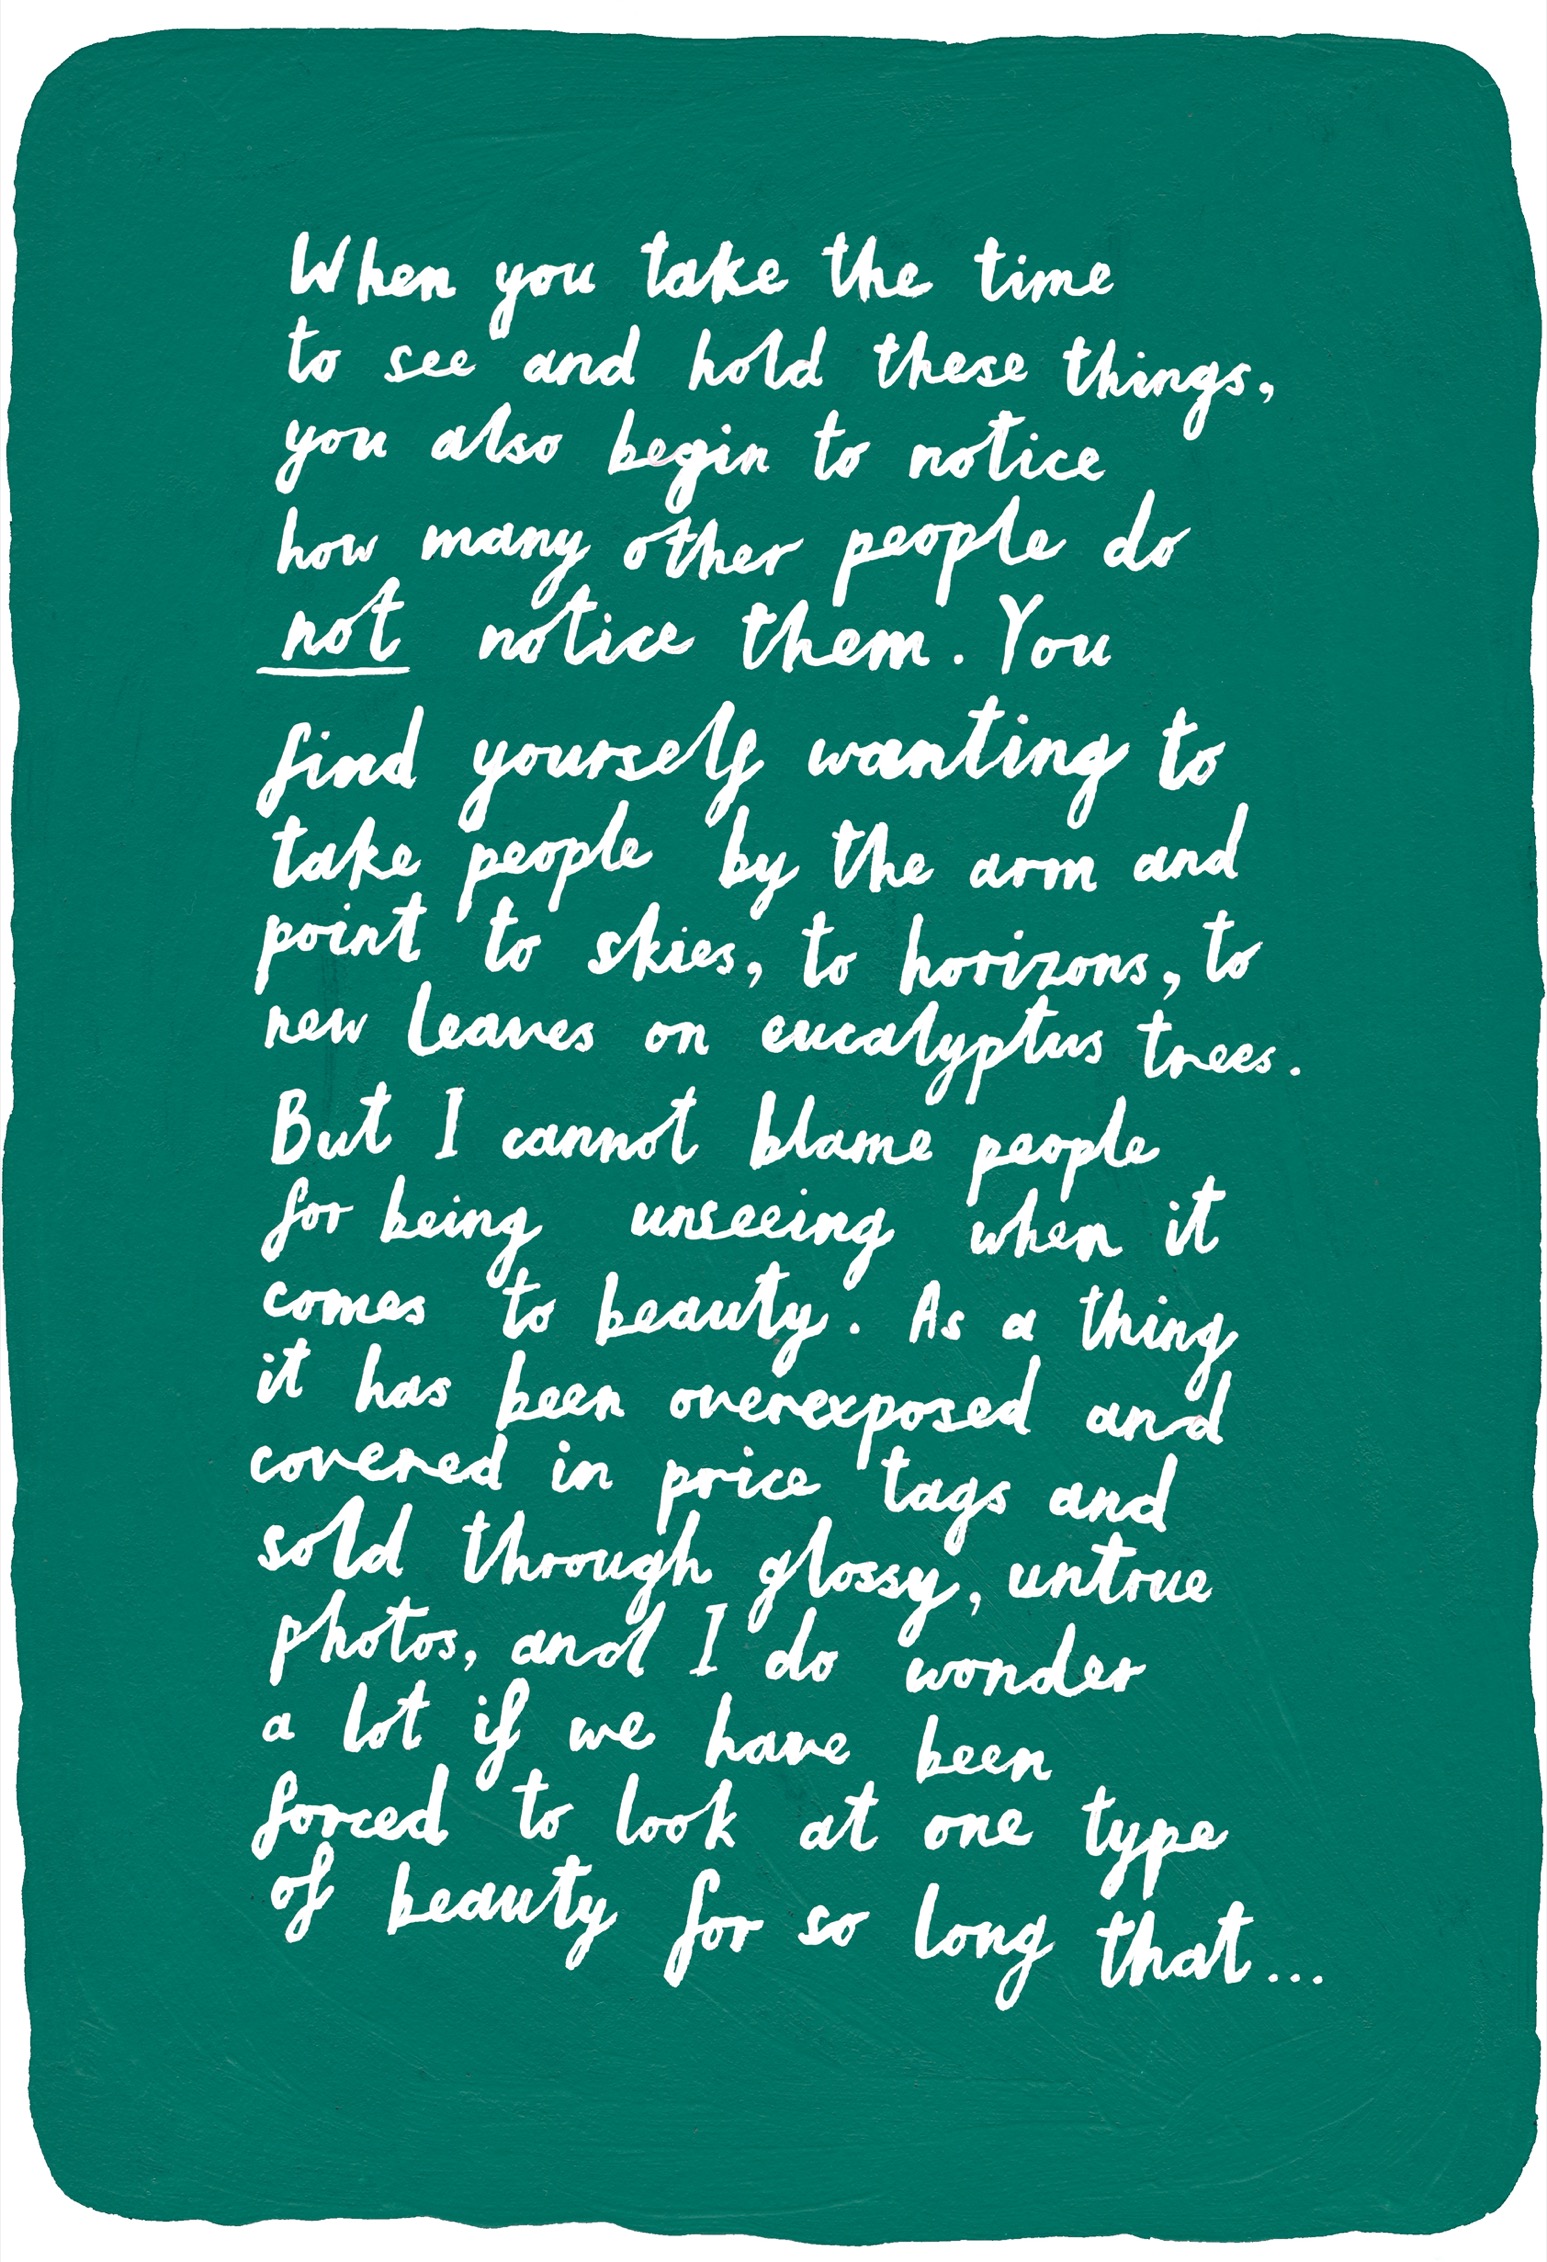 When you take the time
to see and hold these things,
you also begin to notice
how many other people do
not notice them. You
find yourself wanting to
take people by the arm and
point to skies, to horizons, to
new leaves on eucalyptus trees.
But I cannot blame people
for being unseeing when it
comes to beauty. As a thing
it has been overexposed and
covered in price tags and
sold through glossy, untrue
photos, and I do wonder
a lot if we have been
forced to look at one type
of beauty for so long that...